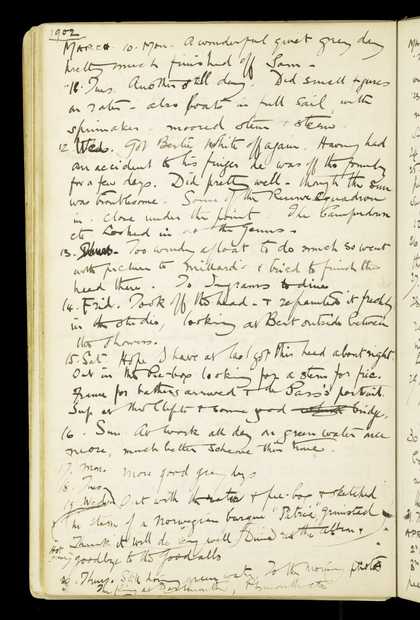 1902
MARCH. 10. Mon. A wonderful quiet grey day
pretty much finished off Sam -
11. Tues. Another still day. Did small figures
on water - also boats in full sail, with
spinnaker. moored stem & stern.
12 Wed. Got Bertie White off again. Having had
an accident to his finger he was off the
for a few days. Did pretty well - though the sun
was troublesome. Some of the Reserve Squadron
in. close under the point. The Camperdown
etc looked in on the
13. Thurs. Too windy afloat to do much so went
with picture to & tried to finish the
head there. To Ingrams to dine
14. Frid. Took off the head - & repainted it freshly
in the studio, looking at Bert outside between
the showers.
15 Sat. Hope I have at last got this head about right.
Out in the looking for a stem for pic.
Frame for bathers arrived & the Pass's portrait.
Sup at the Clift & some good bridge.
16. Sun. At work all day on green water once
more, much better scheme this time.
17. Mon.
more good grey days
18. Tues
19. Wed. Out with the & & sketched
the stem of a Norwegian barque "Patria" Grimstad
I think it will do very well. Dined at the
goodbye to the Goodalls
20. Thurs. Still having green water. To the
The King at Dartmouth, Plymouth etc